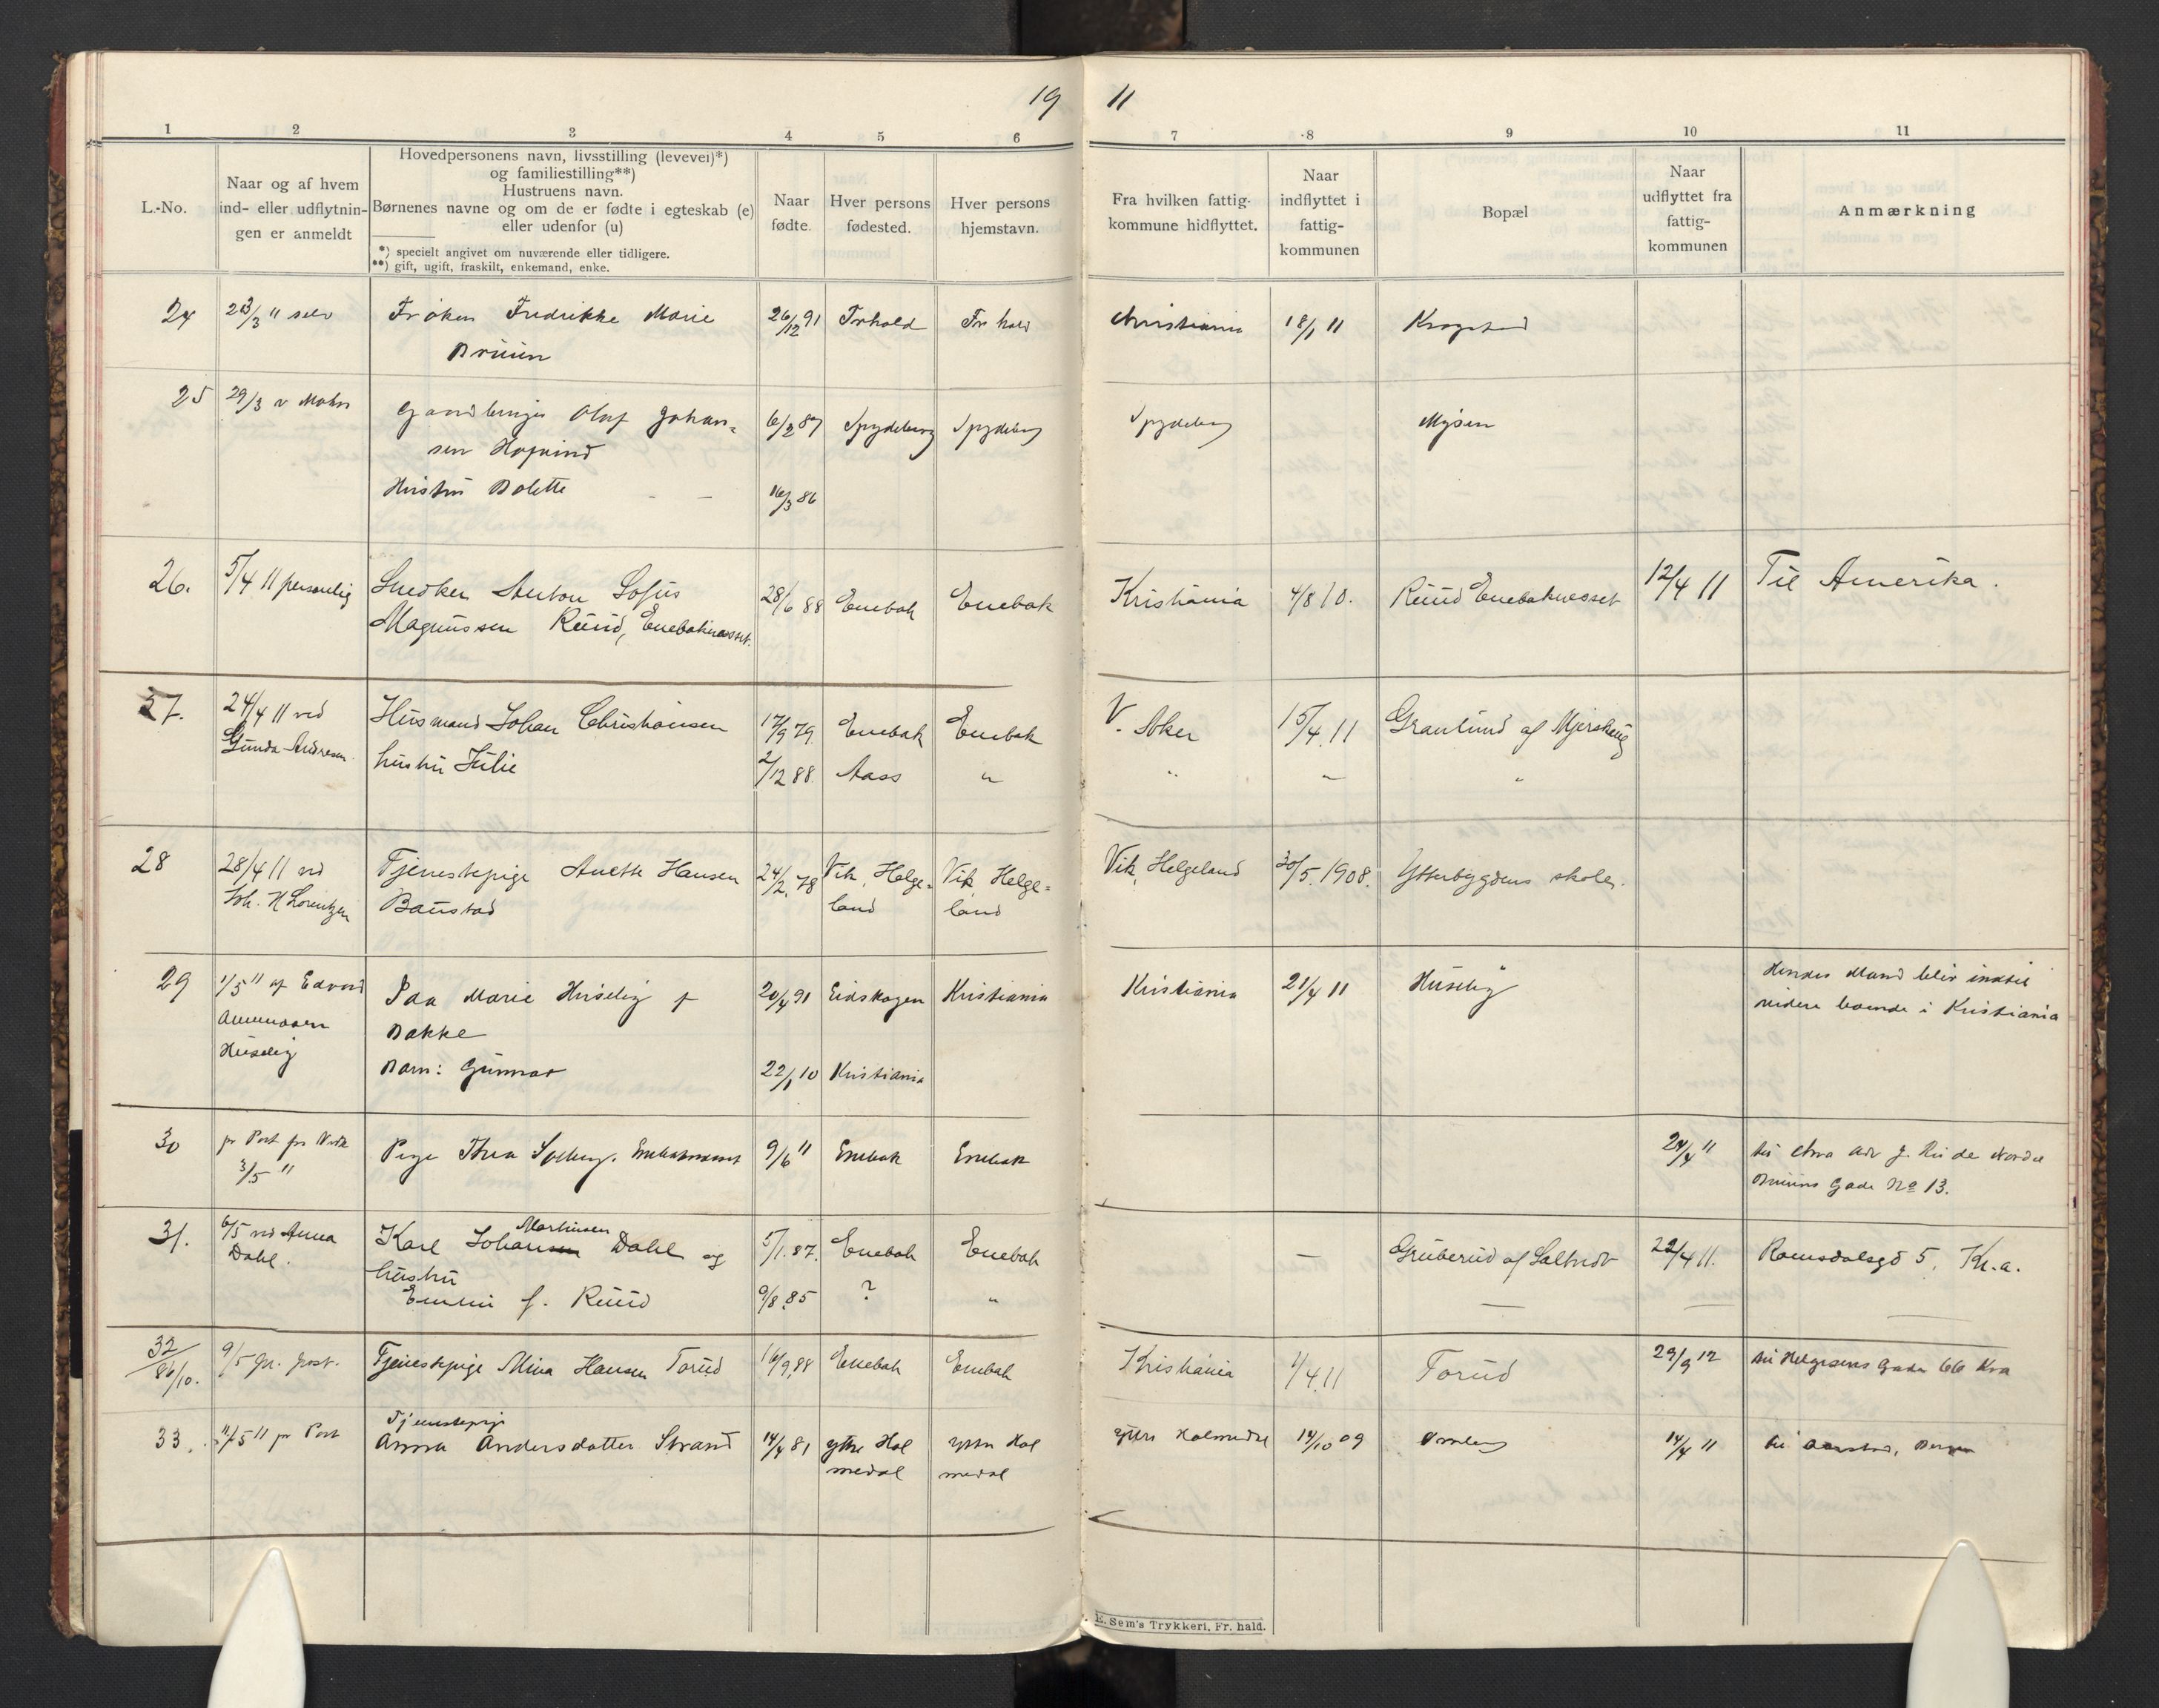 19 11
1 2 3 4 5 6 7 8 9 10 11
L.-No.
Naar og af hvem
ind- eller udflytnin-
gen er anmeldt
Hovedpersonens navn, livsstilling (levevei)*)
og familiestilling**)
Hustruens navn.
Børnenes navne og om de er fødte i egteskab (e)
eller udenfor (u)
*) specielt angivet om nuværende eller tidligere.
**) gift, ugift, fraskilt, enkemand, enke.
Naar
fødte.
Hver persons
fødested.
Hver persons
hjemstavn.
Fra hvilken fattig-
kommune hidflyttet.
Naar
indflyttet i
fattig-
kommunen
Bopæl
Naar
udflyttet fra
fattig-
kommunen
Anmærkning
24 23/3 11 selv Frøken Fredrikke Marie 26/12 91 Frhald Fr hald Christiania 18/1 11 Krogstad
Brüün
25 29/3 v Mohn Olaf Johan= 6/2 87 Spydeberg Spydeberg Spydeberg Mysen
sen Hofvind
Hustru Bolette - - 16/3 86
26. 5/4 11 personlig Snedker Anton Sofus 28/6 88 Enebak Enebak Kristiania 4/8 10. Ruud Enebaknesset 12/4 11 Til Amerika.
Magnussen Ruud, Enebaknesset.
27. 24/4 11 ved Husmand Johan Christiansen 17/9 79 Enebak Enebak V. Aker 15/4 11 Granlund af Mjerskaug
Gunda Andresen. hustru Julie 2/12 88 Aass " " " "
28 28/4 11 ved Tjenestepige Anette Hansen 24/2 78 Vik, Helge= Vik, Helge= Vik, Helgeland 30/5 1908. Ytterbygdens skole.
Joh. H Lorentzen Baustad land land
29 1/5 11 af Edvard Ida Marie Huseby f 20/4 91 Eidskogen Kristiania Kristiania 21/4 11 Huseby Hendes Mand blir indtil
Bakke videre boende i Kristiania
Huseby Barn: Gunnar 22/1 10 Kristiania
30 pr Post fra 3/5 11 Pige Thea Solberg. Enebaknesset 9/6 11 Enebak Enebak 24/4 11
Bruuns Gade No 13.
31. 6/5 ved Anna Karl Johansen Martinsen Dahl og 5/1. 87. Enebak Enebak — Gruberud af Saltvedt 22/4 11. Romsdalsgd 5, Kr.a.
Dahl. hustru
f. Ruud 9/8 85 ? "
32/86/10. 9/5 pr. post. Tjenestepige Mina Hansen Torud 16/9 88 Enebak Enebak Kristiania 1/4 11 Torud 29/9 12 til Helgesens Gade 66 Kra
33. 11/5 11 pr Post Tjenestepige
Anna Andersdatter Strand 14/4 81 ytre Hol ytre Hol ytre Holmedal 14/10 09 14/4 11 til
medal medal
E. Sem's Trykkeri, Fr. hald.